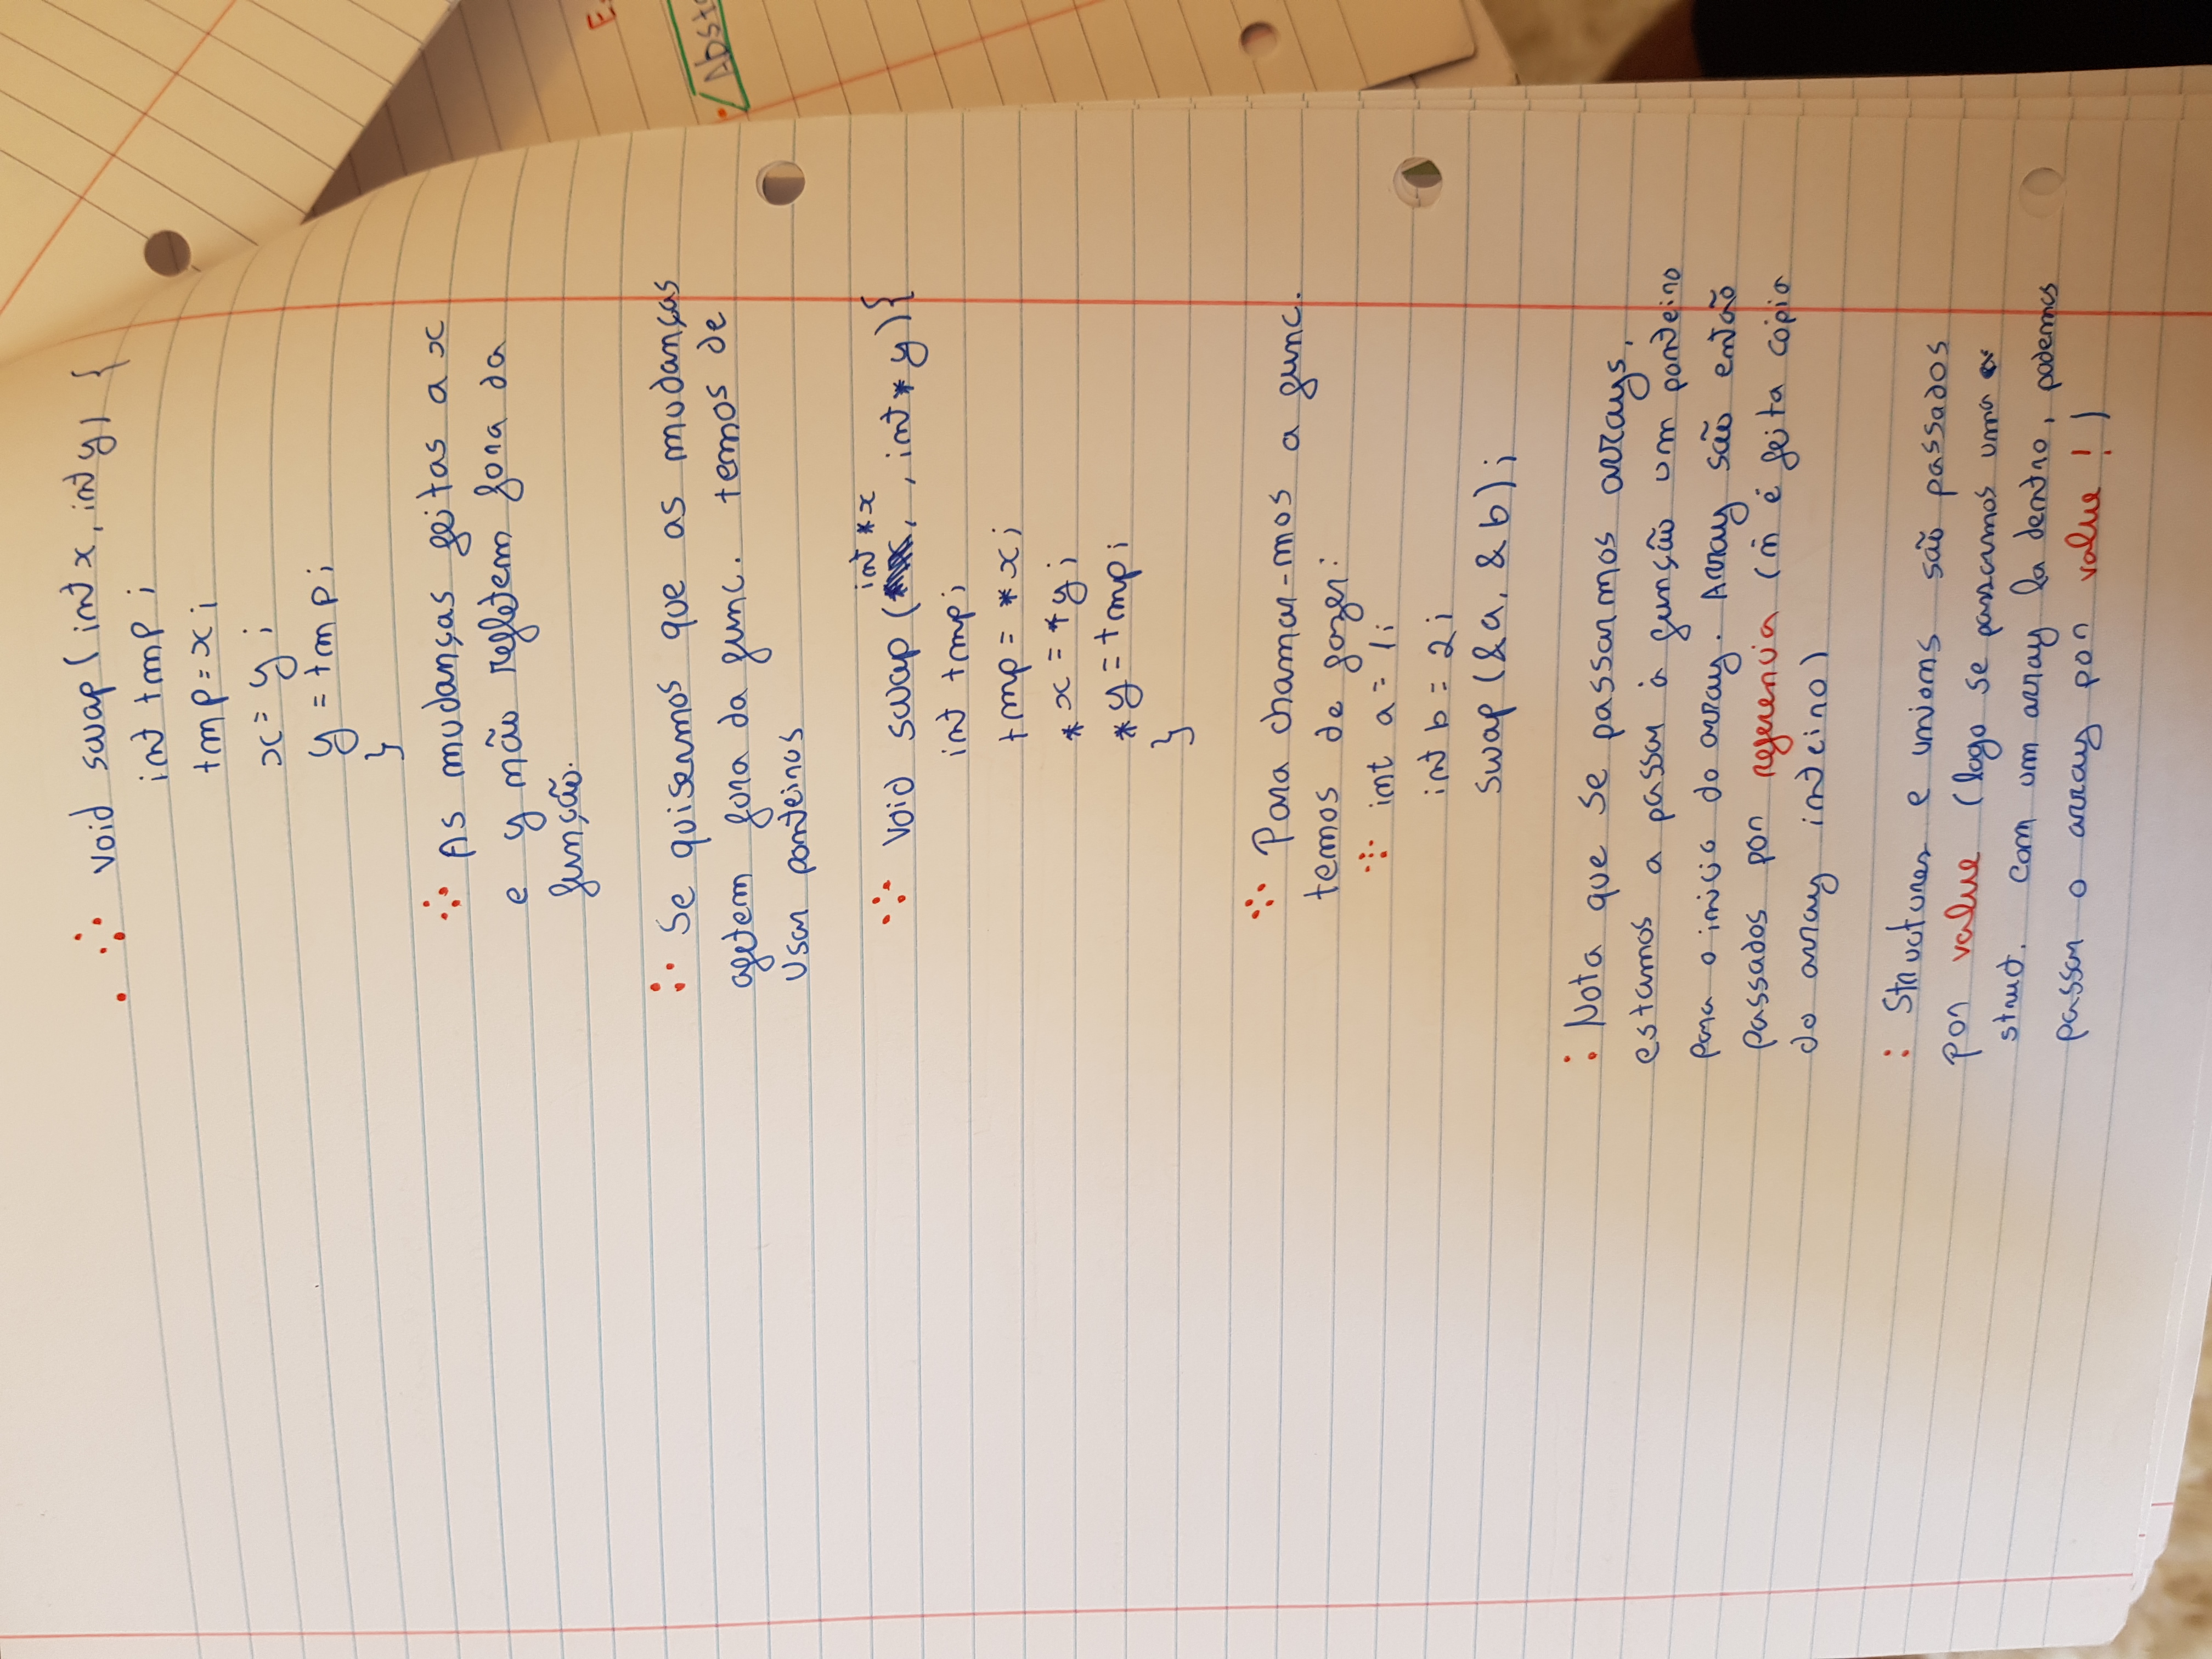 void swap (int x, int y) {
int tmp;
tmp = x;
x = y;
y = tmp;
}
As mudanças feitas a x
e y não refletem fora da
função.
Se quisermos que as mudanças
afetem fora da func. temos de
usar ponteiros
int *x
void swap ( , , int * y) {
int tmp;
tmp = *x;
*x = *y;
*y = tmp;
}
Para chamar-mos a func.
temos de fazer:
int a = 1;
int b = 2;
swap (&a, &b);
Nota que se passarmos arrays,
estamos a passar à função um ponteiro
para o inicio do array. Array são então
passados por referencia (ñ é feita cópia
do array inteiro)
Structures e unions são passados
por value (logo se passarmos uma
struct. com um array la dentro, podemos
passar o array por value! )
E.
Abst